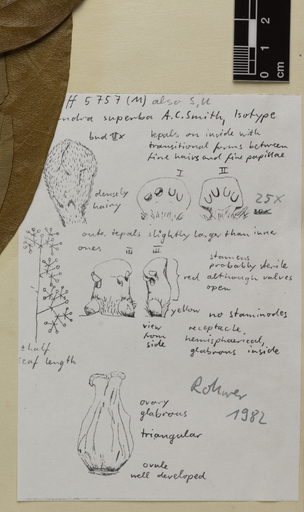 ff 5757 (M) also S, U
andra superba A.C. Smith, Isotype
bud IIx
tepals on inside with
transitional forms between
fine hairs and fine papillae
I II
densely
hairy
25x
oute tepals slightly larger than inner
ones
III III
stamens
probably sterile
although valves
open
red
yellow
no staminodes
view
from
side
receptacle
hemisphaerical,
glabrous inside
half
leaf length
Rohwer
1982
ovary
glabrous
triangular
ovule
well developed
0 1 2
cm